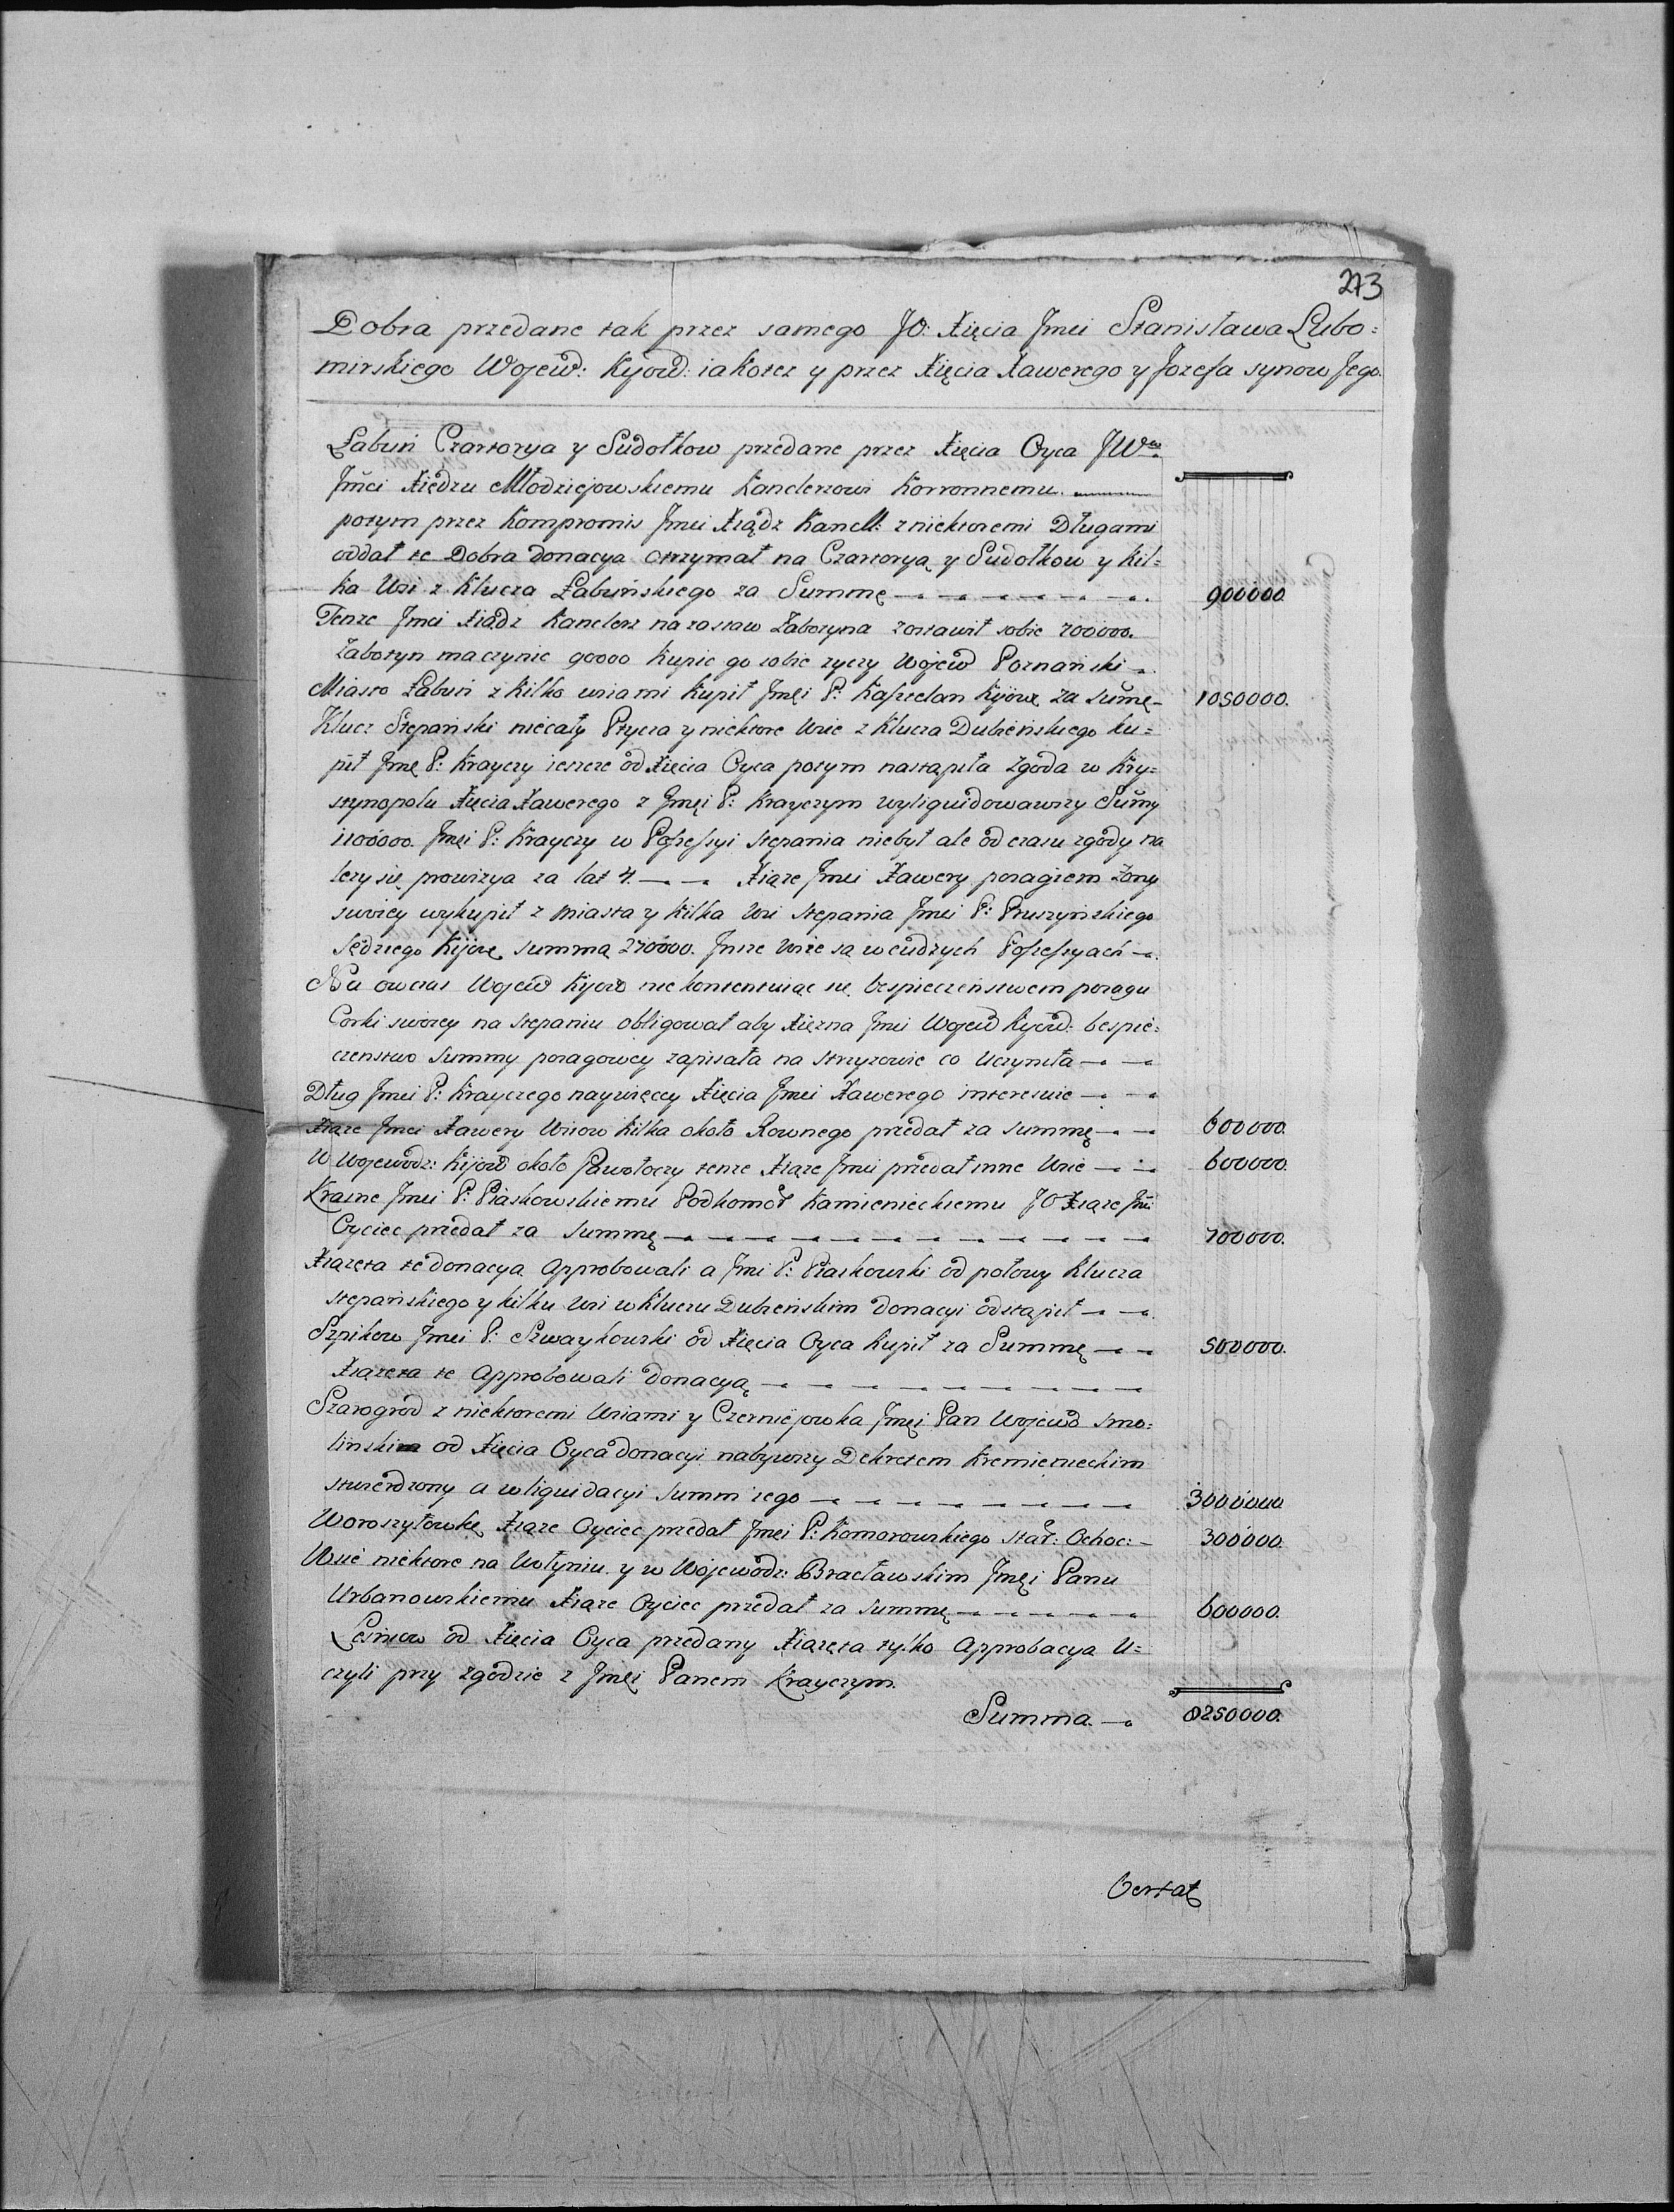 273
Dobra przedane tak przez samego JO: Xięcia Jmci Stanisława Lubo=
mirskiego Wojew: Kijow: iakotez y przez Xięcia Xawerego y Jozefa synow Jego.
Łabuń Czartorya y Sudołkow przedane przez Xięcia Oyca JW
Jmci Xiędzu Młodziejowskiemu Kanclerzowi Korronnemu.
potym przez Kompromis Jmci Xiądz Kancll: z niektoremi Długami
oddał te Dobra donacya otrzymał na Czartoryą y Sudołkow y Kil=
ka Wsi z Klucza Łabuńskiego za Summę 900000.
Tenze Jmci Xiądz Kanclerz na zastaw Zabotyna zostawił sobie 700000.
Zabotyn ma czynic 90000 Kupic go sobie zyczy Wojew Poznański
Miasto Łabuń z Kilko wsiami Kupił Jmci P: Kasztelan Kijow za Summę 1050000.
Klucz Stepański niecały Ptycza y niektore Wsie z Klucza Dubieńskiego ku=
pił Jmc P: Krayczy ieszcze od Xięcia Oyca potym nastąpiła Zgoda w Kry=
stynopolu Xięcia Xawerego z Jmci P: Krayczym wyliquidowawszy Summy
1100000. Jmci P: Krayczy w Possessyi Stepania niebył ale od czasu zgody na
lezy się prowizya za lat 4. Xiąze Jmci Xawery posagiem Zony
swoiey wykupił z miasta y kilka Wsi Stepania Jmci P: Pruszyńskiego
Sędziego Kijow summą 270000. Insze Wsie są w cudzych Possessyach
Na owczas Wojew Kijow nie kontentuiąc się bespieczeństwem posagu
Corki swoiey na Stepaniu obligował aby Xięzna Jmci Wojew Kijow: bespie=
czenstwo Summy posagowey zapisała na Strzyzowie co Uczyniła
Dług Jmci P: Krayczego naywięcey Xięcia Jmci Xawerego interesuie
Xiąze Jmci Xawery Wsiow Kilka około Rownego przedał za summę 600000.
W Wojewodz: Kijow około Pawołoczy tenze Xiąze Jmci przedał inne Wsie 600000.
Krasne Jmci P: Piaskowskiemu Podkomor Kamienieckiemu JO Xiąze Jmci
Oyciec przedał za Summę 700000.
Xiązęta tę donacya Approbowali a Jmci P: Piaskowski od połowy Klucza
stepańskiego y kilku Wsi w Kluczu Dubieńskim donacyi odstąpił
Szpikow Jmci P: Szwaykowski od Xięcia Oyca Kupił za Summę 500000.
Xiązęta te Approbowali donacyą
Szarogrod z niektoremi Wsiami y Czerniejowka Jmci Pan Wojewod Smo=
liński od Xięcia Oyca donacyi nabywszy Dekretem Kremienieckim
stwierdzony a w liquidacyi Summ iego 3000000
Woroszyłowkę Xiąze Oyciec przedał Jmci P: Komorowskiego Star: Ochoc: 300000.
Wsie niektore na Wołyniu y w Wojewodz: Bracławskim Jmci Panu
Urbanowskiemu Xiąze Oyciec przedał za summę 600000.
Leśniow od Xięcia Oyca przedany Xiązęta tylko Approbacya U=
czyli przy Zgodzie z Jmci Panem Krayczym.
Summa 8250000.